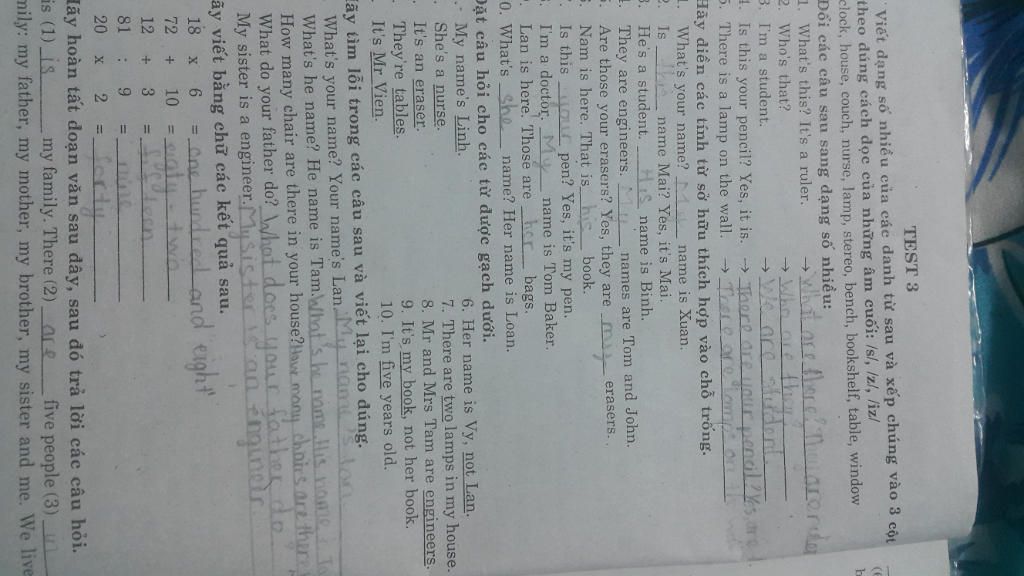 TEST 3
Viết dạng số nhiều của các danh từ sau và xếp chúng vào 3 cột
theo đúng cách đọc của những âm cuối: /s/, /z/, /iz/
clock, house, couch, nurse, lamp, stereo, bench, bookshelf, table, window
Đổi các câu sau sang dạng số nhiều:
1. What's this? It's a ruler. → What are there? They are
2. Who's that? → Who are they?
3. I'm a student. → We are student
4. Is this your pencil? Yes, it is. → There are your pencil? Yes, are
5. There is a lamp on the wall. → There are lamps on the
Hãy điền các tính từ sở hữu thích hợp vào chỗ trống.
1. What's your name? My name is Xuan.
2. Is name Mai? Yes, it's Mai.
3. He's a student. His name is Binh.
4. They are engineers. My names are Tom and John.
5. Are those your erasers? Yes, they are my erasers.
6. Nam is here. That is his book.
7. Is this your pen? Yes, it's my pen.
8. I'm a doctor. My name is Tom Baker.
9. Lan is here. Those are her bags.
0. What's she name? Her name is Loan.
Đặt câu hỏi cho các từ được gạch dưới.
My name's Linh.
She's a nurse.
It's an eraser.
They're tables.
It's Mr Vien.
6. Her name is Vy, not Lan.
7. There are two lamps in my house.
8. Mr and Mrs Tam are engineers.
9. It's my book, not her book.
10. I'm five years old.
Hãy tìm lỗi trong các câu sau và viết lại cho đúng.
What's your name? Your name's Lan. My name's Lan
What's he name? He name is Tam. What's he name His name is
How many chair are there in your house? How many chairs are there
What do your father do? What does your father do
My sister is a engineer. My sister is an engineer
Hãy viết bằng chữ các kết quả sau.
18 x 6 = one hundred and eight
72 + 10 = eighty-two
12 + 3 = fifteen
81 : 9 = nine
20 x 2 = forty
Hãy hoàn tất đoạn văn sau đây, sau đó trả lời các câu hỏi.
is (1) is my family. There (2) are five people (3) in
mily: my father, my mother, my brother, my sister and me. We live